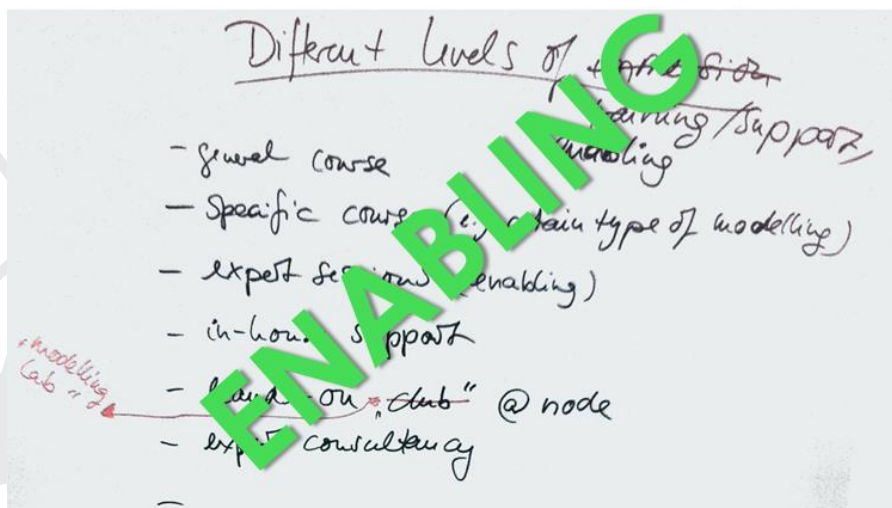 Different levels of
training/support,
enabling
- general course
- Specific course (e.g. certain type of modelling)
- expert sessions (enabling)
- in-house support
- hands-on „club“ @ node
„modelling
lab“
- expert consultancy
-
ENABLING